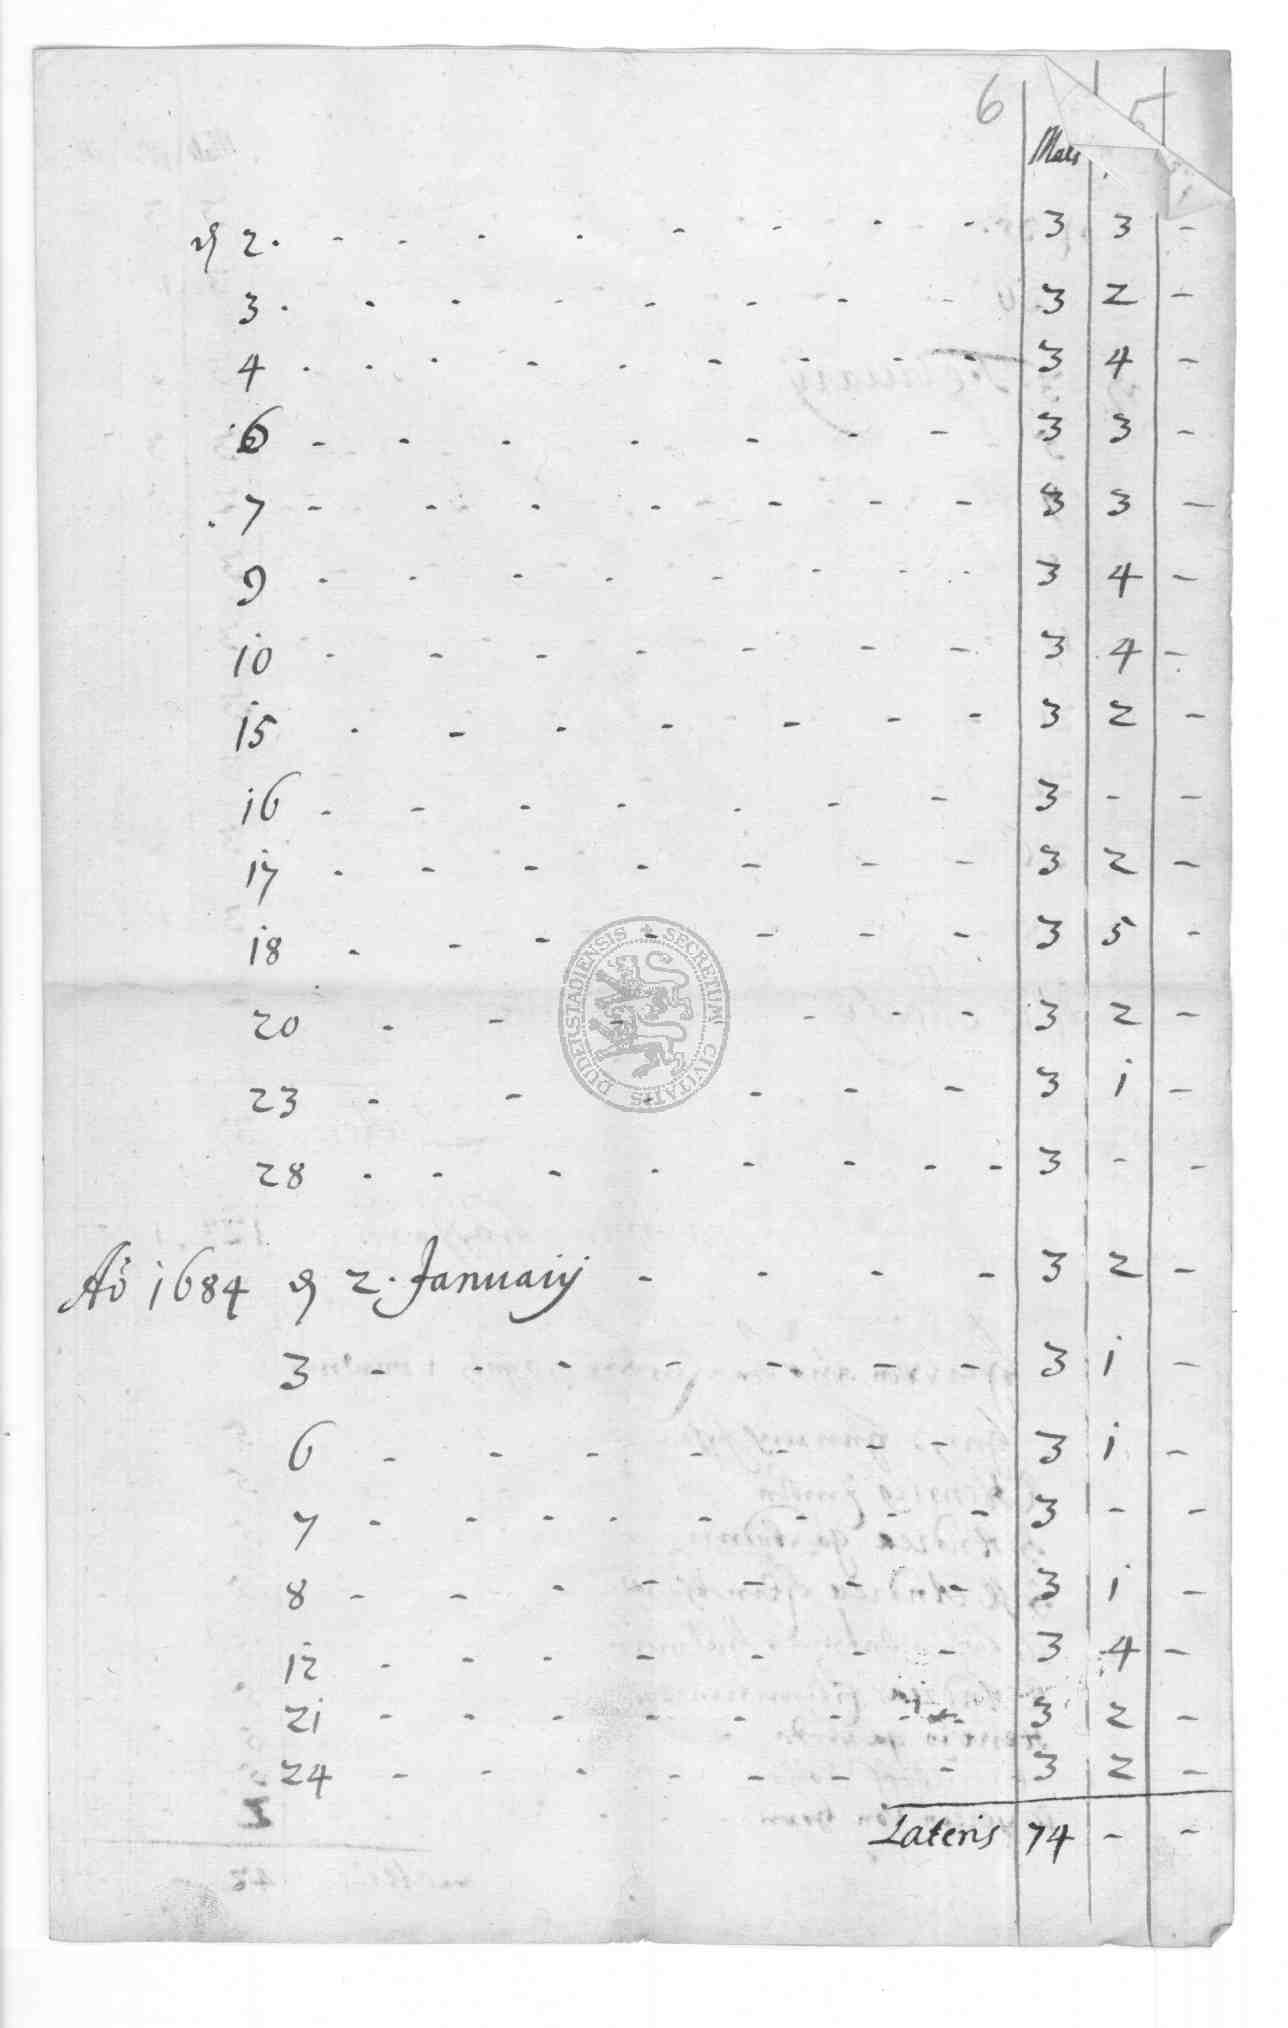 6
Mar
2. - - - - - - - 3 3 -
3. - - - - - - - 3 2 -
4. - - - - - - - 3 4 -
6 - - - - - - - 3 3 -
7 - - - - - - - 3 3 -
9 - - - - - - - 3 4 -
10 - - - - - - - 3 4 -
15 - - - - - - - 3 2 -
16 - - - - - - - 3 - -
17 - - - - - - - 3 2 -
18 - - - - - - - 3 5 -
20 - - - - - - 3 2 -
23 - - - - - - 3 1 -
28 - - - - - - - - 3 - -
Aõ 1684 2. Januarij - - - - 3 2 -
3 - - - - - - - 3 1 -
6 - - - - - - 3 1 -
7 - - - - - - - 3 - -
8 - - - - - - - 3 1 -
12 - - - - - - - 3 4 -
21 - - - - - - - 3 2 -
24 - - - - - - - 3 2 -
Lateris 74 - -
SECRETUM CIVITATIS DUDERSTADIENSIS